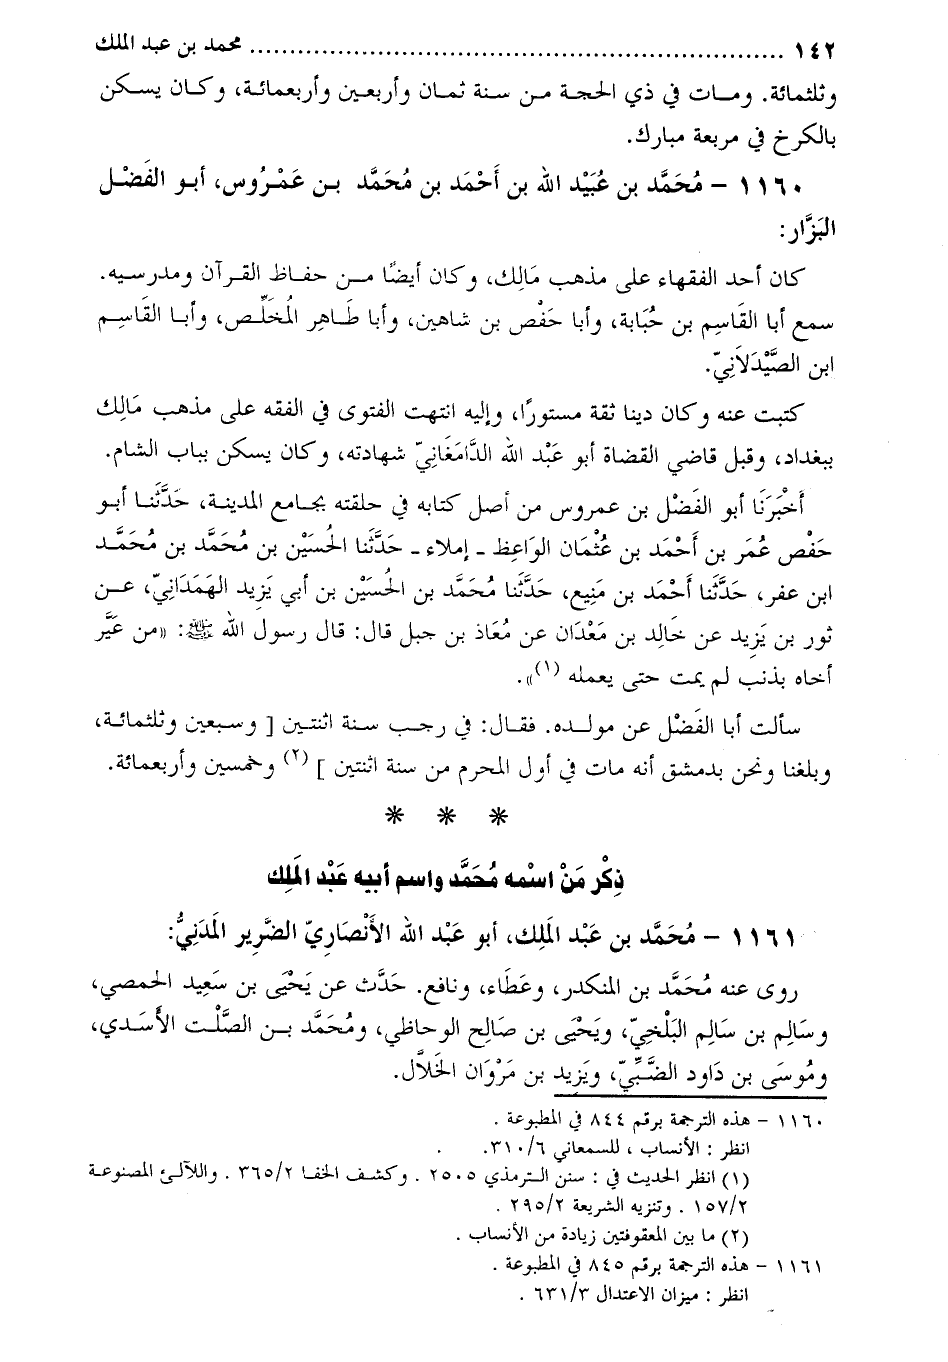 ١٤٢ ........................................................ محمد بن عبد الملك
وثلثمائة. ومات في ذي الحجة من سنة ثمان وأربعين وأربعمائة، وكان يسكن
بالكرخ في مربعة مبارك.
١١٦٠ – مُحَمَّد بن عُبَيْد الله بن أَحْمَد بن مُحَمَّد بن عَمْرُوس، أبو الفَضْل
البَزَّار:
كان أحد الفقهاء على مذهب مَالِك، وكان أيضًا من حفاظ القرآن ومدرسيه.
سمع أبا القَاسِم بن حُبَابة، وأبا حَفْص بن شاهين، وأبا طَاهِر المُخَلِّص، وأبا القَاسِم
ابن الصَّيْدَلاَنِيّ.
كتبت عنه وكان دينا ثقة مستورًا، وإليه انتهت الفتوى في الفقه على مذهب مَالِك
ببغداد، وقبل قاضي القضاة أبو عَبْد الله الدَّامَغَانِيّ شهادته، وكان يسكن بباب الشام.
أَخْبَرَنَا أبو الفَضْل بن عمروس من أصل كتابه في حلقته بجامع المدينة، حَدَّثَنا أبو
حَفْص عُمَر بن أَحْمَد بن عُثْمَان الوَاعِظ ـ إملاء ـ حَدَّثَنا الحُسَيْن بن مُحَمَّد بن مُحَمَّد
ابن عفر، حَدَّثَنا أَحْمَد بن مَنِيع، حَدَّثَنا مُحَمَّد بن الحُسَيْن بن أبي يَزِيد الهَمَدَانِيّ، عن
ثور بن يَزِيد عن خَالِد بن مَعْدَان عن مُعَاذ بن جبل قال: قال رسول الله ﷺ: «من عَيَّر
أخاه بذنب لم يمت حتى يعمله (١)».
سألت أبا الفَضْل عن مولده. فقال: في رجب سنة اثنتين [ وسبعين وثلثمائة،
وبلغنا ونحن بدمشق أنه مات في أول المحرم من سنة اثنتين ] (٢) وخمسين وأربعمائة.
* * *
ذِكْر مَنْ اسْمه مُحَمَّد واسم أبيه عَبْد المَلِك
١١٦١ – مُحَمَّد بن عَبْد المَلِك، أبو عَبْد الله الأَنْصَارِيّ الضَّرِير المَدَنِيُّ:
روى عنه مُحَمَّد بن المنكدر، وعَطَاء، ونافع. حَدَّث عن يَحْيَى بن سَعِيد الحمصي،
وسَالِم بن سَالِم البَلْخِيّ، ويَحْيَى بن صَالِح الوحاظي، ومُحَمَّد بن الصَّلْت الأَسَدي،
ومُوسَى بن دَاود الضَّبِّيّ، ويَزِيد بن مَرْوَان الخَلاَّل.
١١٦٠ – هذه الترجمة برقم ٨٤٤ في المطبوعة .
انظر : الأنساب ، للسمعاني ٣١٠/٦. .
(١) انظر الحديث في : سنن الترمذي ٢٥٠٥ . وكشف الخفا ٣٦٥/٢ . واللآلئ المصنوعة
١٥٧/٢ . وتنزيه الشريعة ٢٩٥/٢ .
(٢) ما بين المعقوفتين زيادة من الأنساب .
١١٦١ – هذه الترجمة برقم ٨٤٥ في المطبوعة .
انظر : ميزان الاعتدال ٦٣١/٣ .